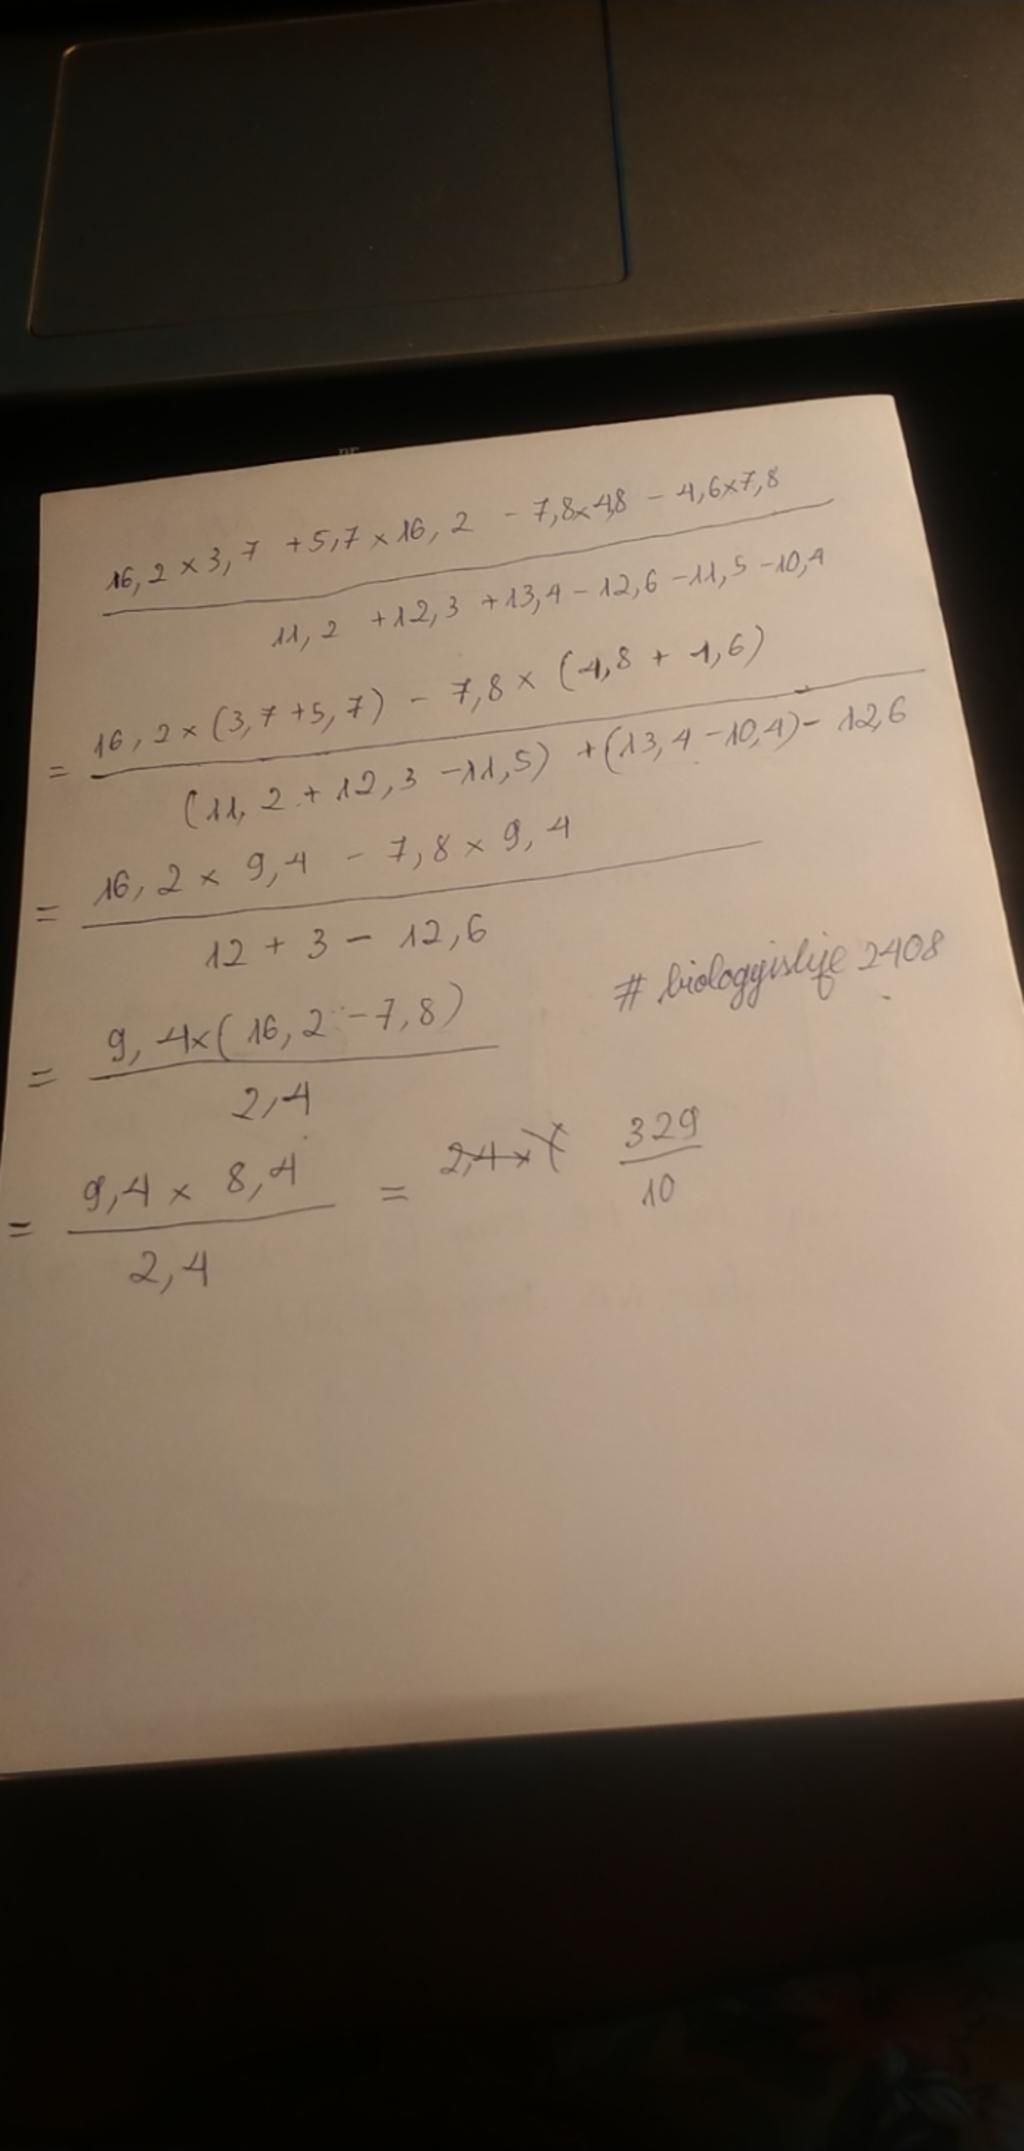 16,2 × 3,7 + 5,7 × 16,2 - 7,8 × 4,8 - 4,6 × 7,8
11,2 + 12,3 + 13,4 - 12,6 - 11,5 - 10,4
= 16,2 × (3,7 + 5,7) - 7,8 × (4,8 + 4,6)
(11,2 + 12,3 - 11,5) + (13,4 - 10,4) - 12,6
= 16,2 × 9,4 - 7,8 × 9,4
12 + 3 - 12,6
# biologyislife 2408
= 9,4 × (16,2 - 7,8)
2,4
= 9,4 × 8,4 = 329
2,4 10